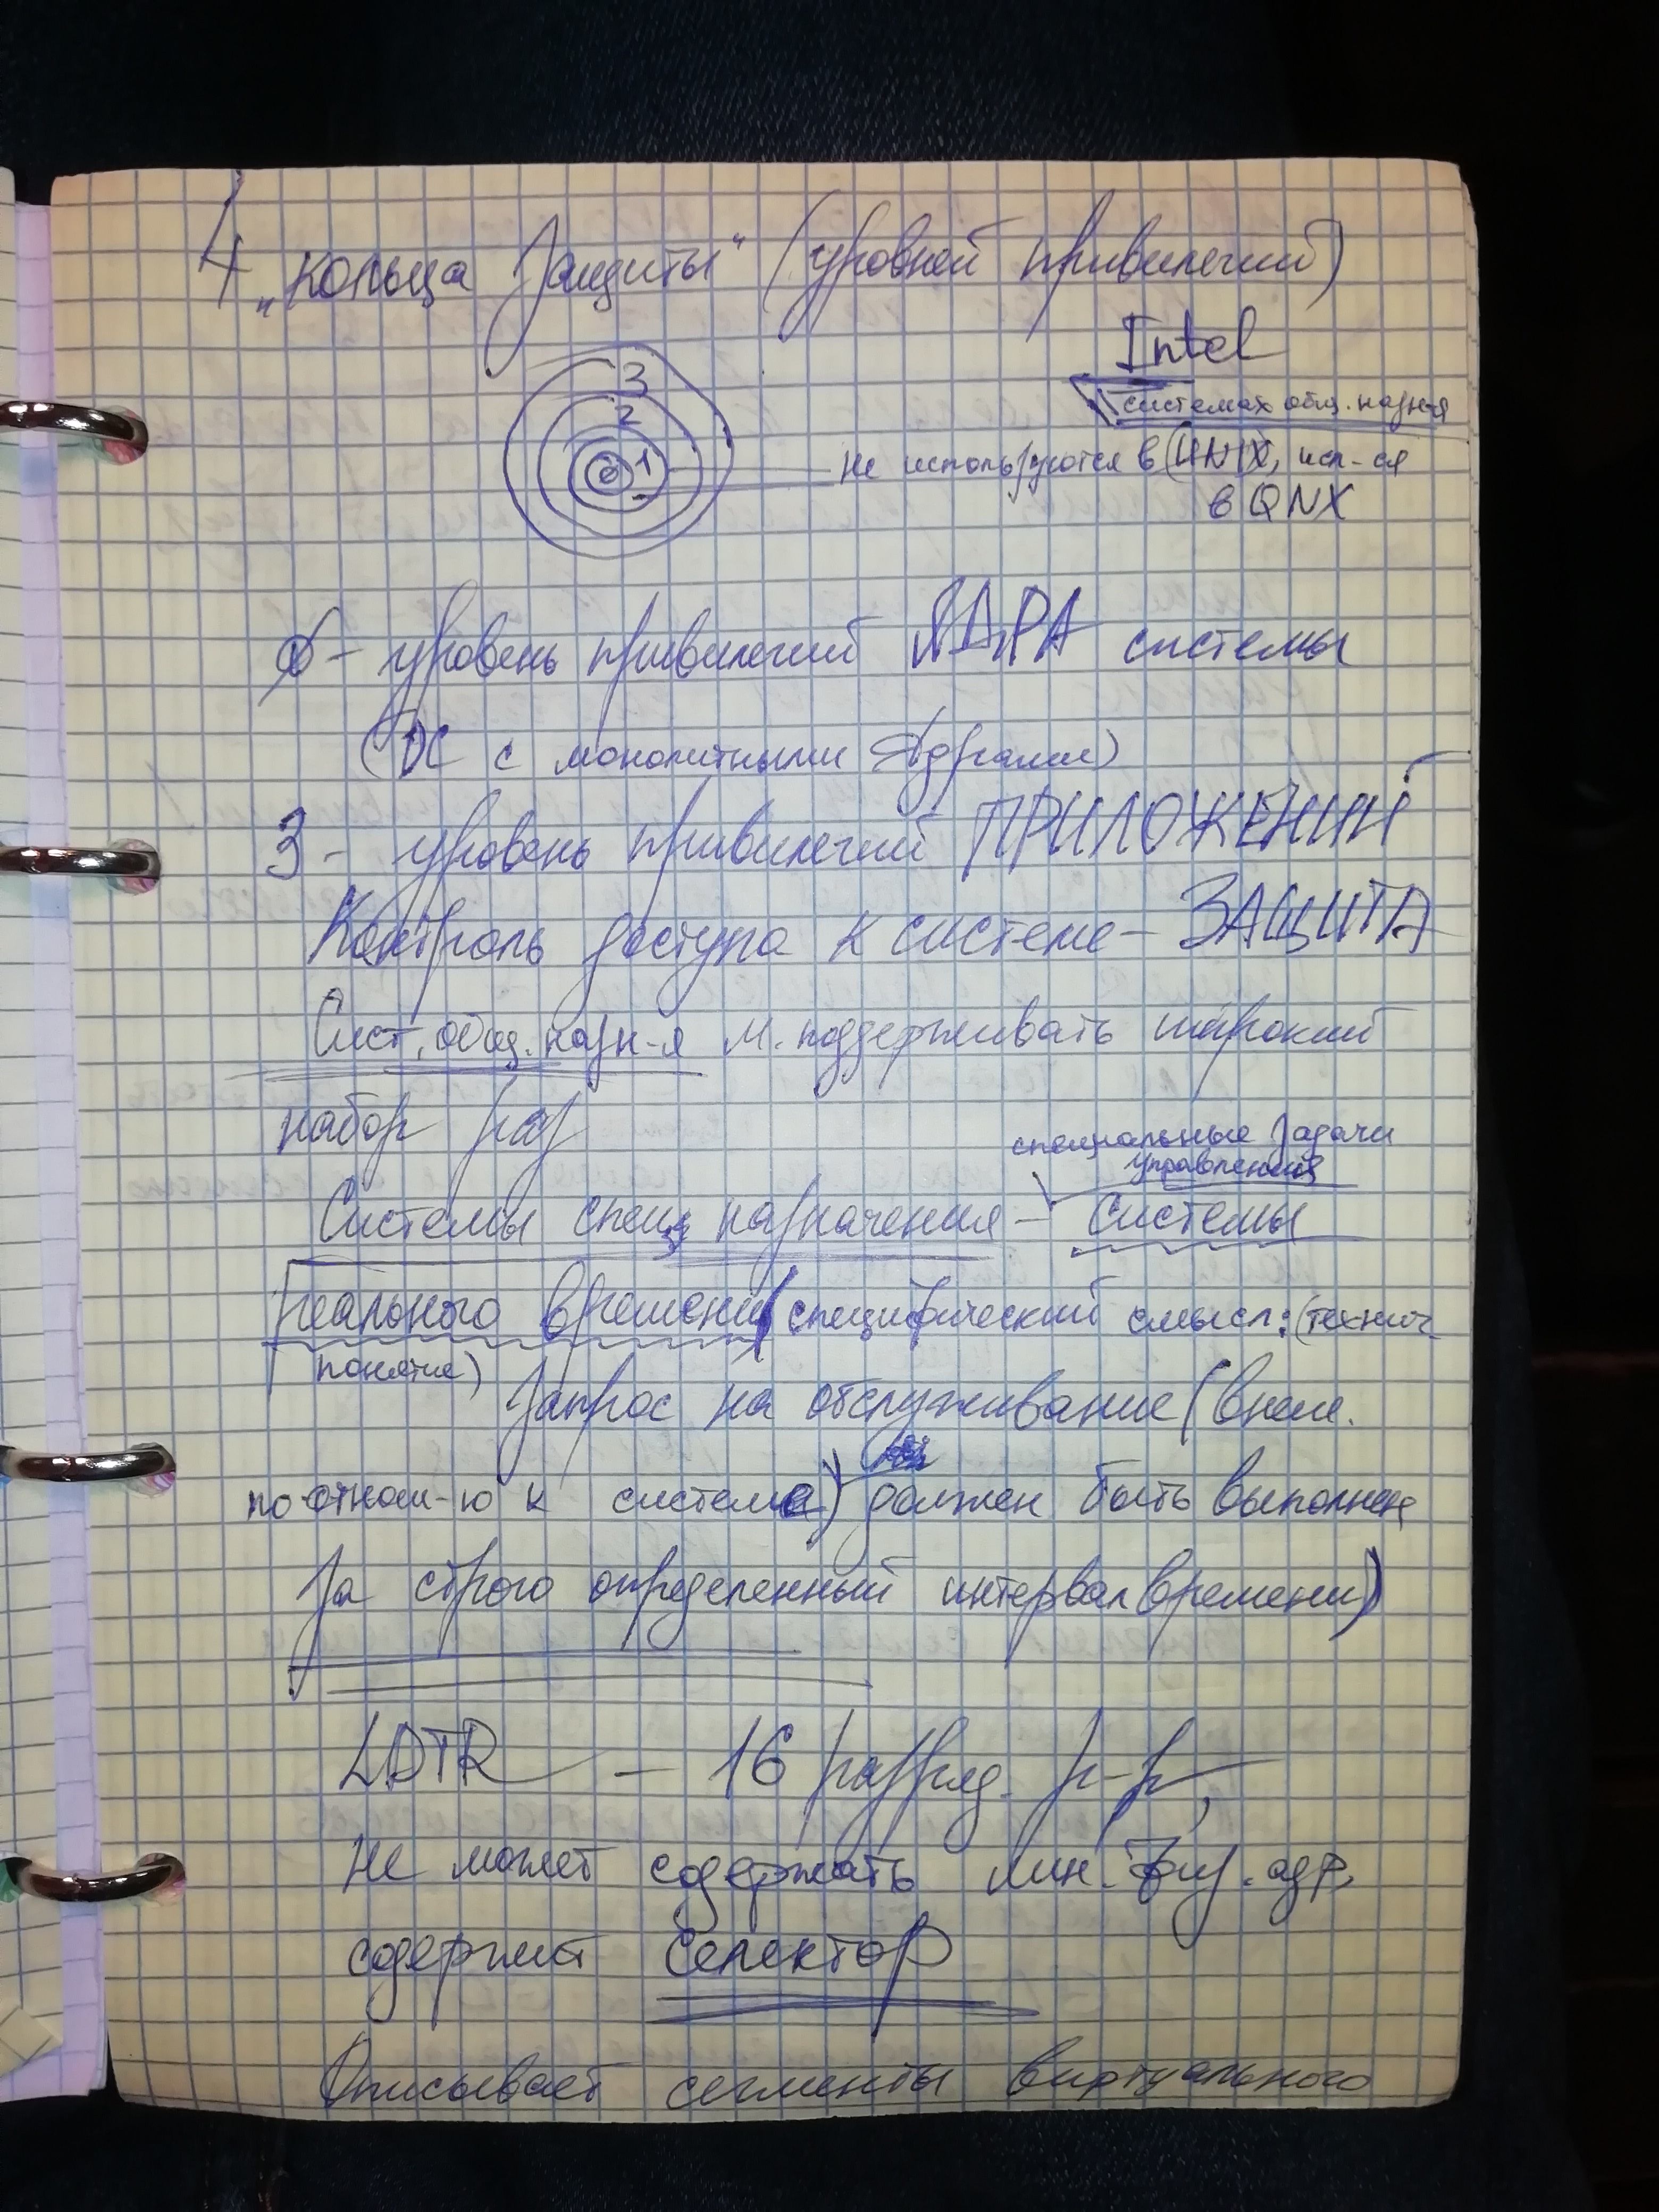 4 „кольца защиты“ (уровней привилегий)
Intel
3
системах общ. назн-я
2
1
0
не используются в UNIX, исп-ся
в QNX
0 - уровень привилегий ЯДРА системы
(ОС с монолитными Ядрами)
3 - уровень привилегий ПРИЛОЖЕНИЙ
Контроль доступа к системе - ЗАЩИТА
Сист. общ. назн-я м. поддерживать широкий
набор
специальные задачи
управления
Системы спец назначения - системы
реального времени (специфический смысл: (технич.
понятие)
Запрос на обслуживание (внеш.
по отнош-ю к системе) должен быть выполнен
за строго определенный интервал времени)
LDTR - 16 разряд. р-р,
не может содержать лин. физ. адр.
содержит селектор
Описывает сегменты виртуального